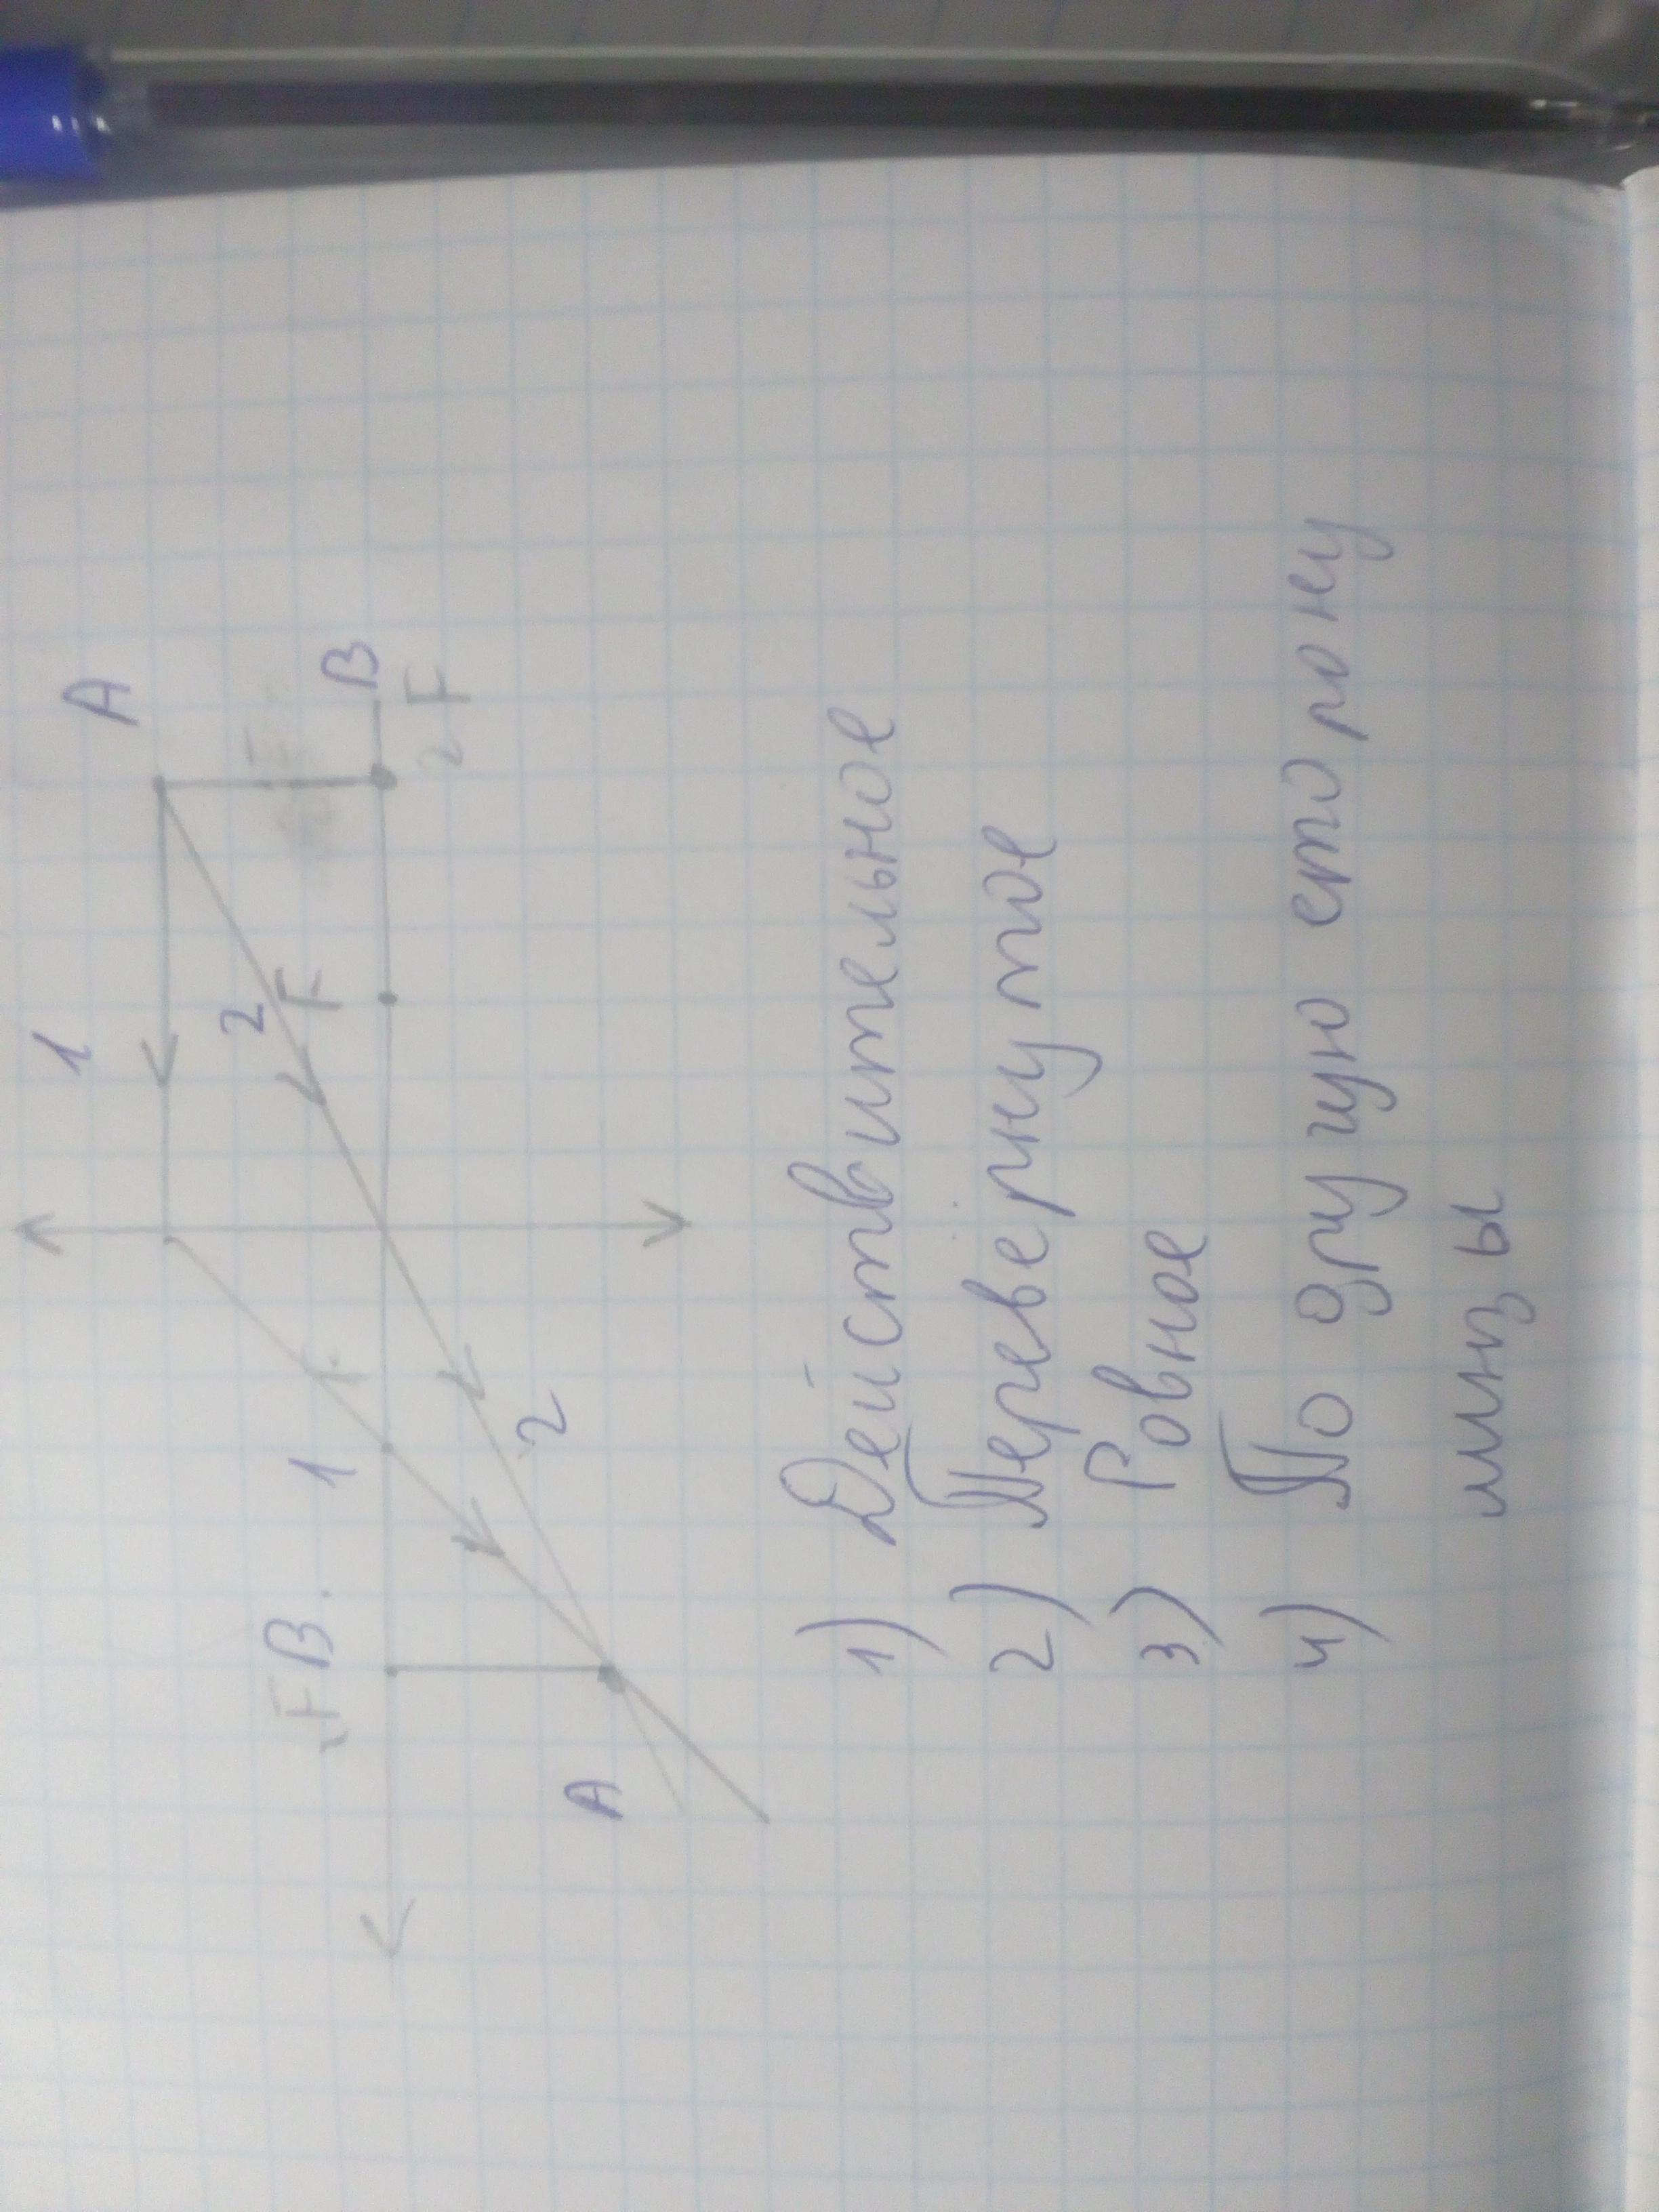 1 A
2 F
2F B 1 F B
2F
A 2
1) Действительное
2) Перевернутое
3) Ровное
4) По другую сторону
линзы